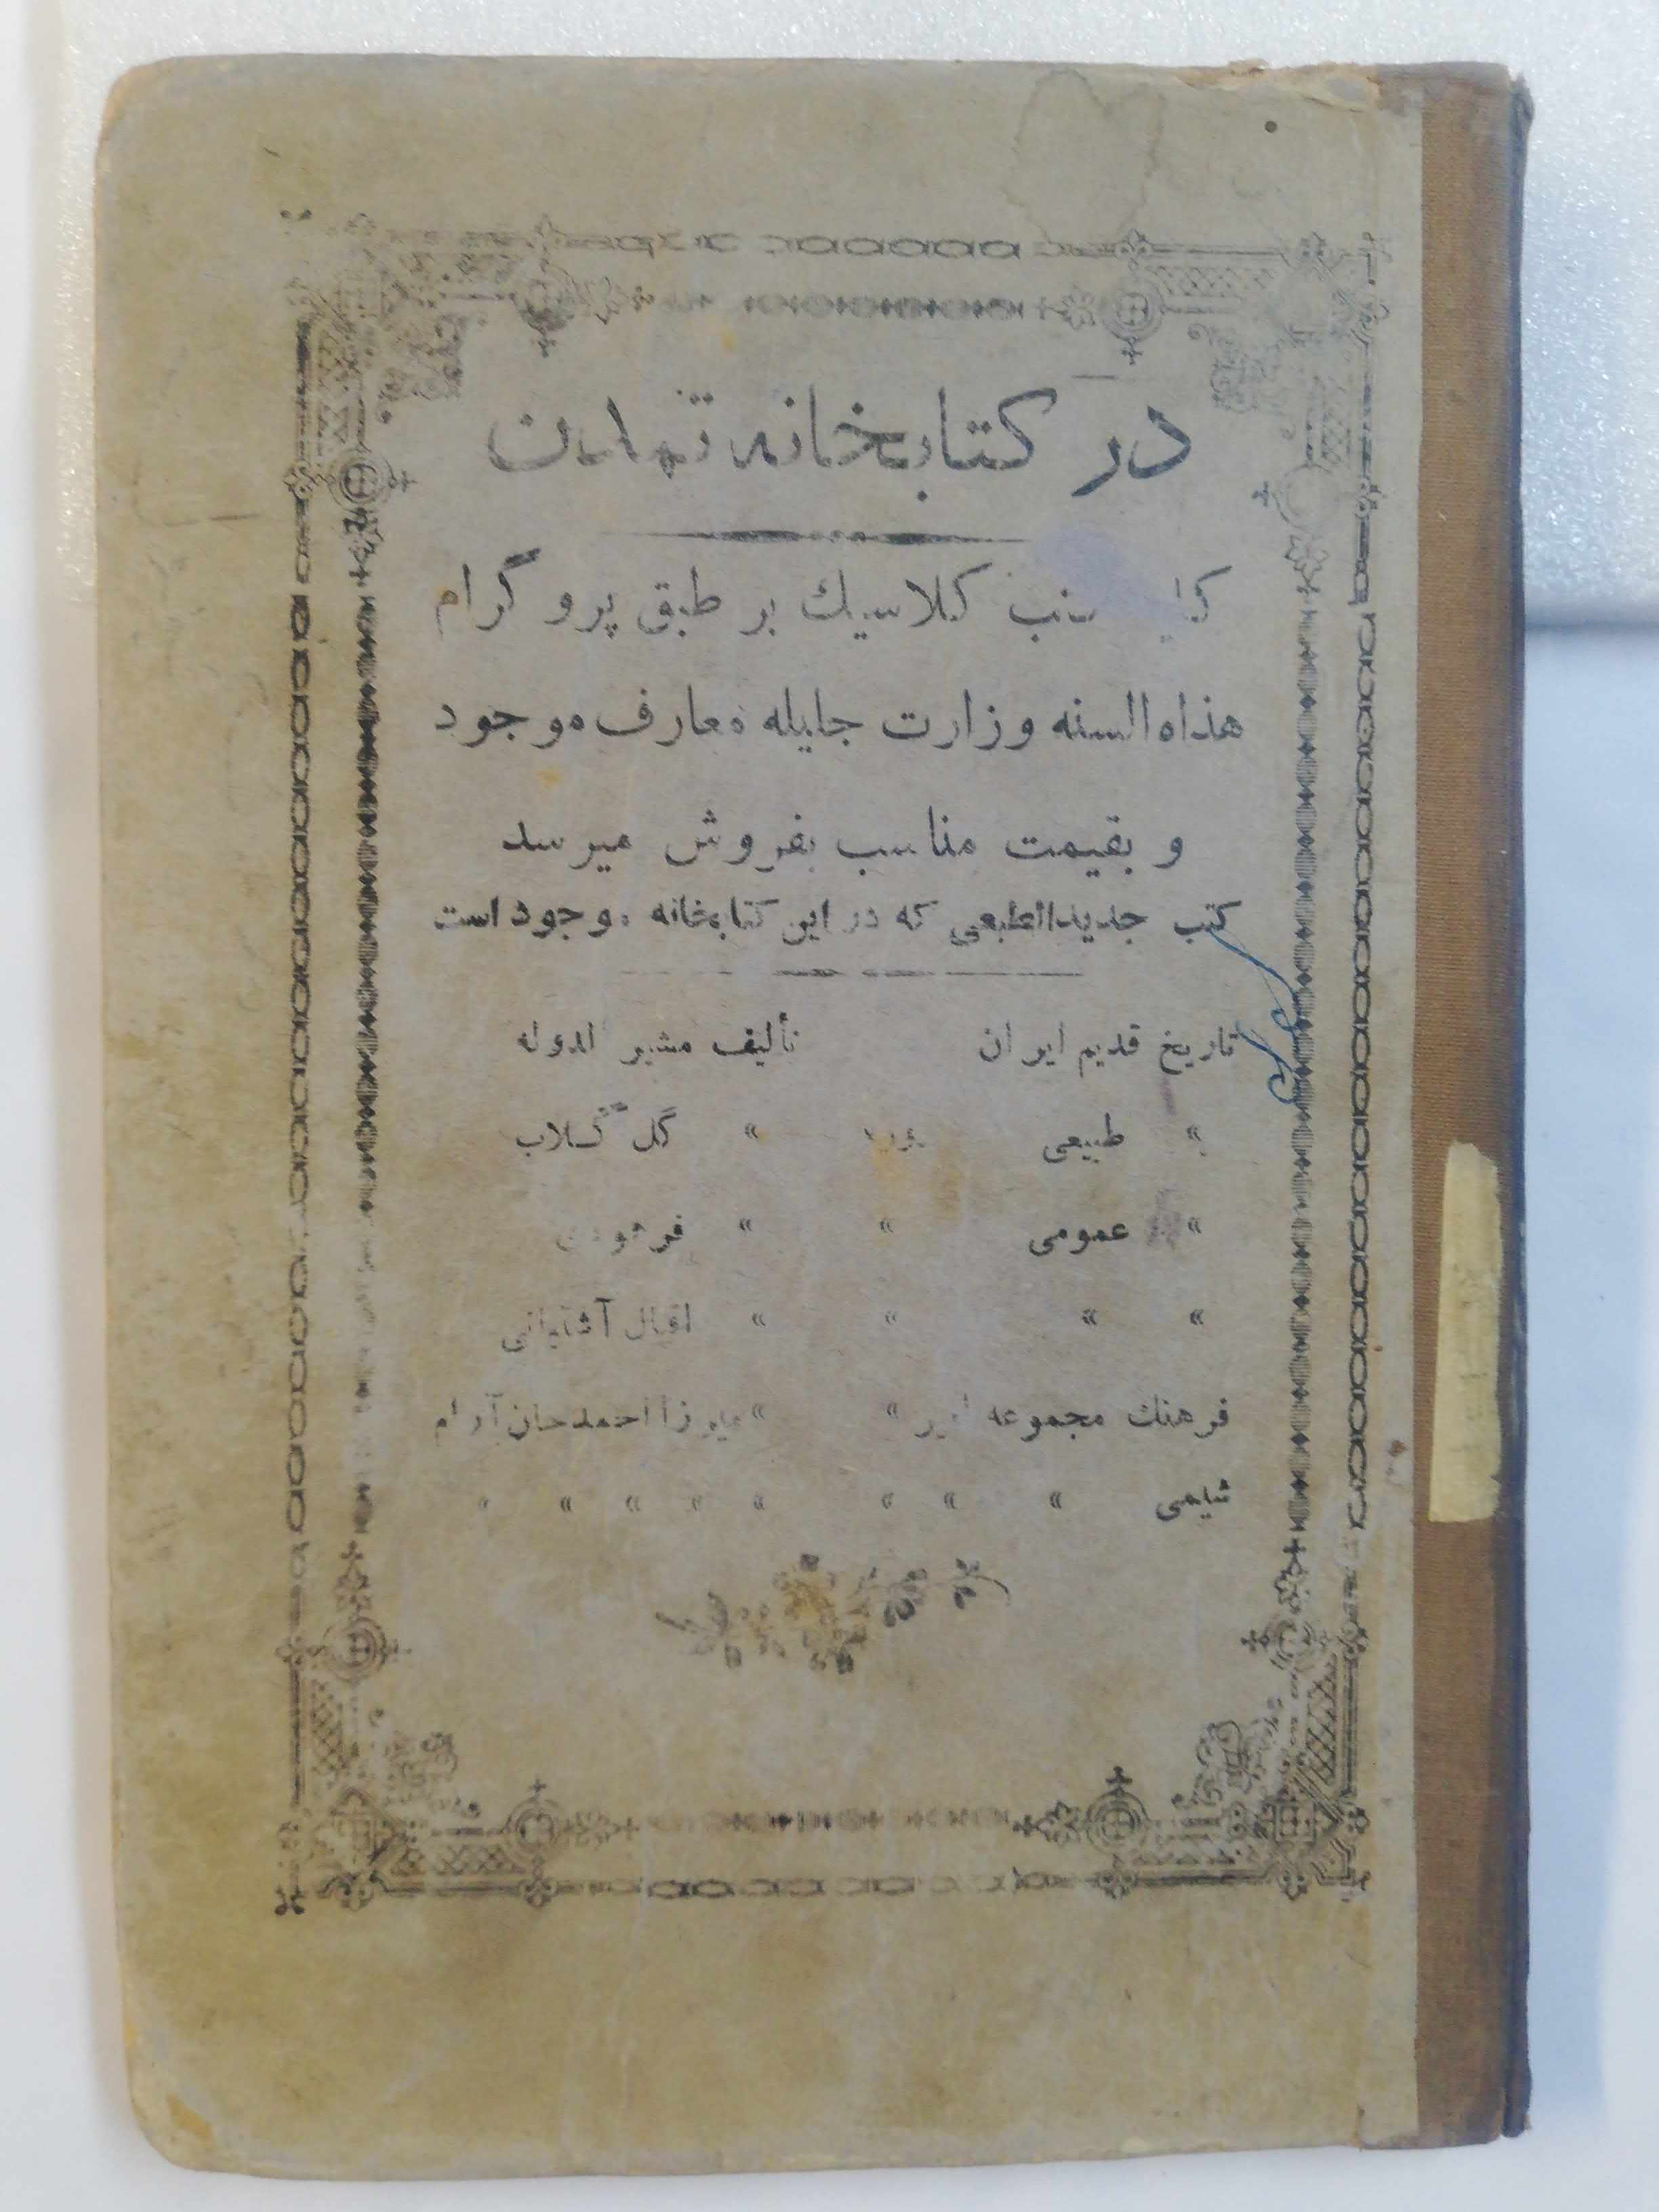 در کتابخانه تمدن
کتب کلاسیك بر طبق پروگرام
هذاه السنه وزارت جلیله معارف موجود
و بقیمت مناسب بفروش میرسد
کتب جدیدالطبعی که در این کتابخانه موجود است
تاریخ قدیم ایران تألیف مشیر الدوله
» طبیعی » گل گلاب
» عمومی » »
» » » » اقبال آشتیانی
فرهنك مجموعه » » میرزا احمدخان آرام
شیمی » » » » » » » »